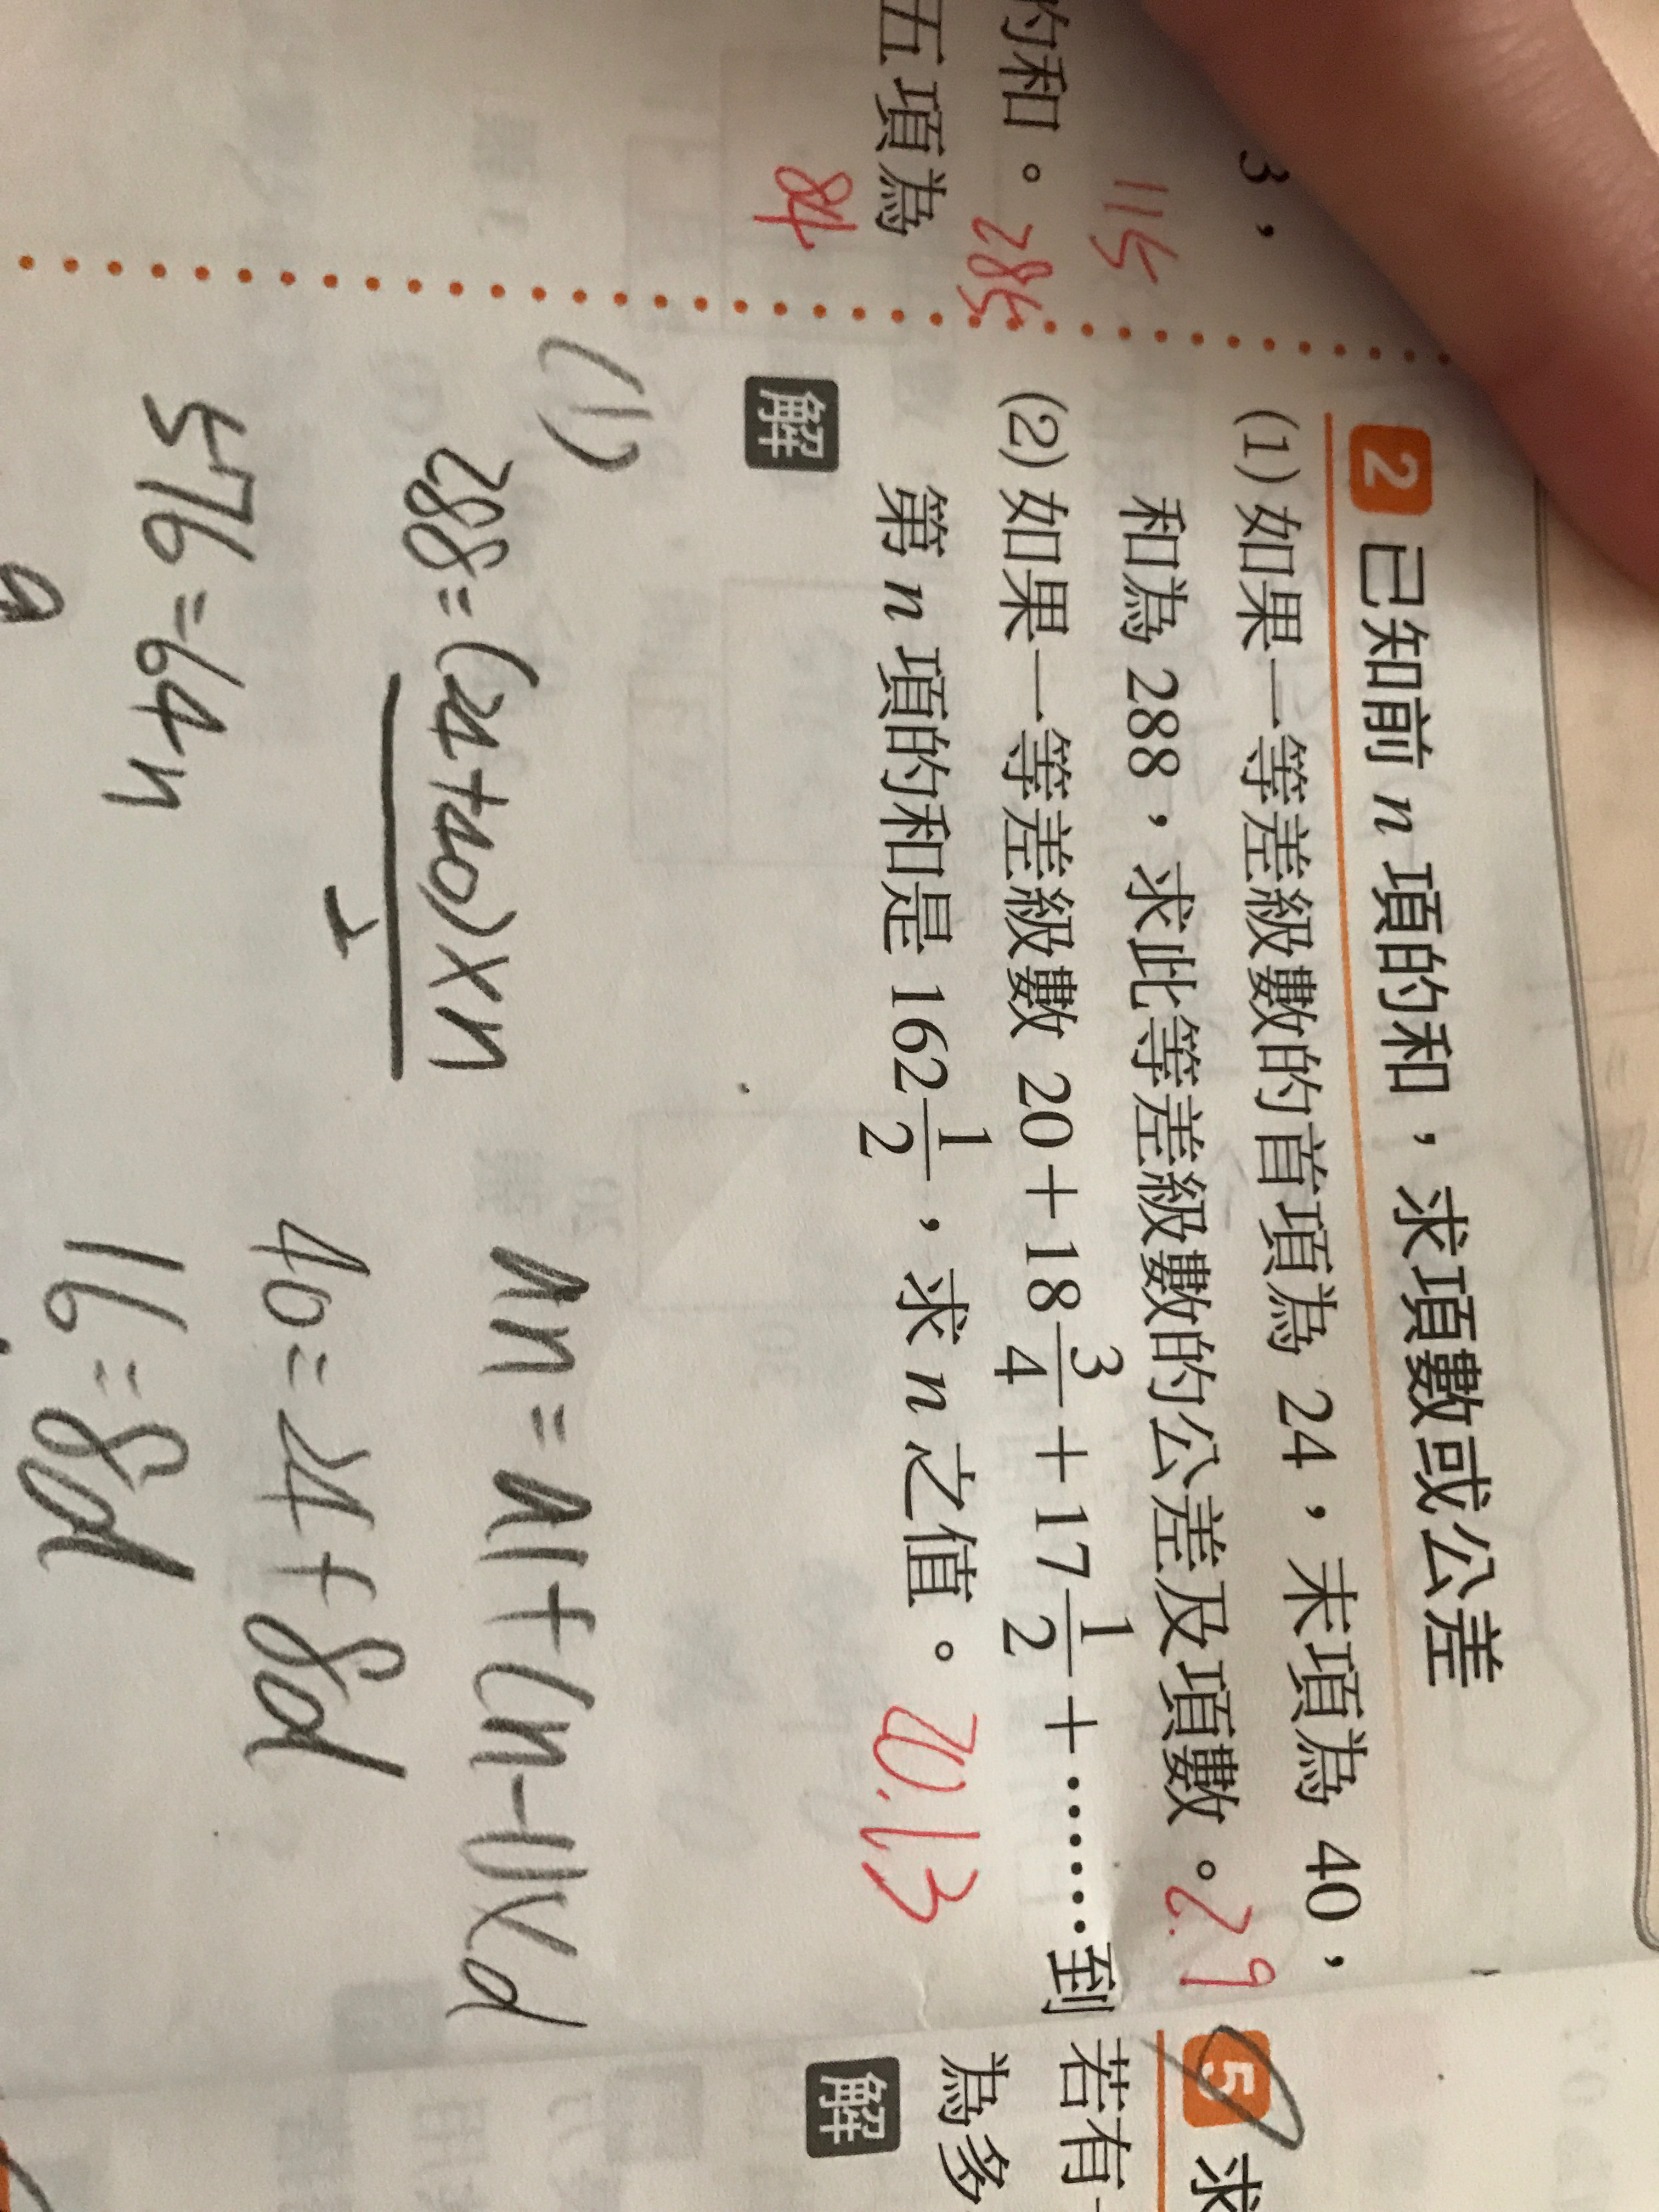 3，
115
的和。285
五項為
84
2 已知前 n 項的和，求項數或公差
(1) 如果一等差級數的首項為 24，末項為 40，
和為 288，求此等差級數的公差及項數。2.9
(2) 如果一等差級數 20＋18 3/4＋17 1/2＋……到
第 n 項的和是 162 1/2，求 n 之值。20.13
解
(1)
288=(24+40)×n
2
576=64n
9
an=a1+(n-1)×d
40=24+8d
16=8d
5 求
若有
為多
解